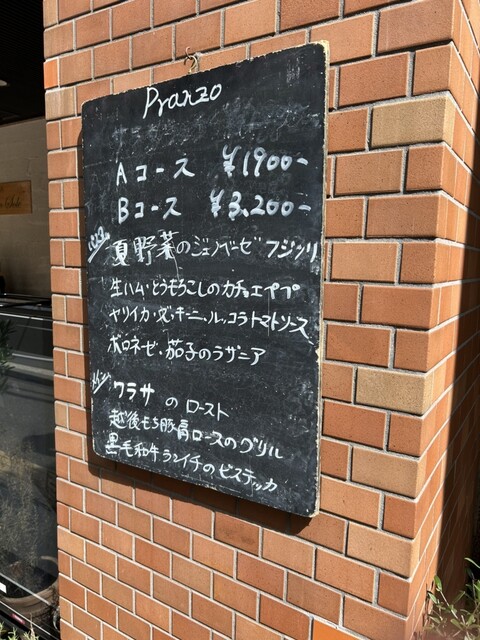 Pranzo
Aコース ¥1900-
Bコース ¥3,200-
夏野菜のジェノベーゼ フジッリ
生ハム・とうもろこしのカチョエペペ
ヤリイカ・ズッキーニ・ルッコラトマトソース
ボロネーゼ・茄子のラザニア
ワラサ の ロースト
越後もち豚肩ロースのグリル
黒毛和牛ランイチのビステッカ